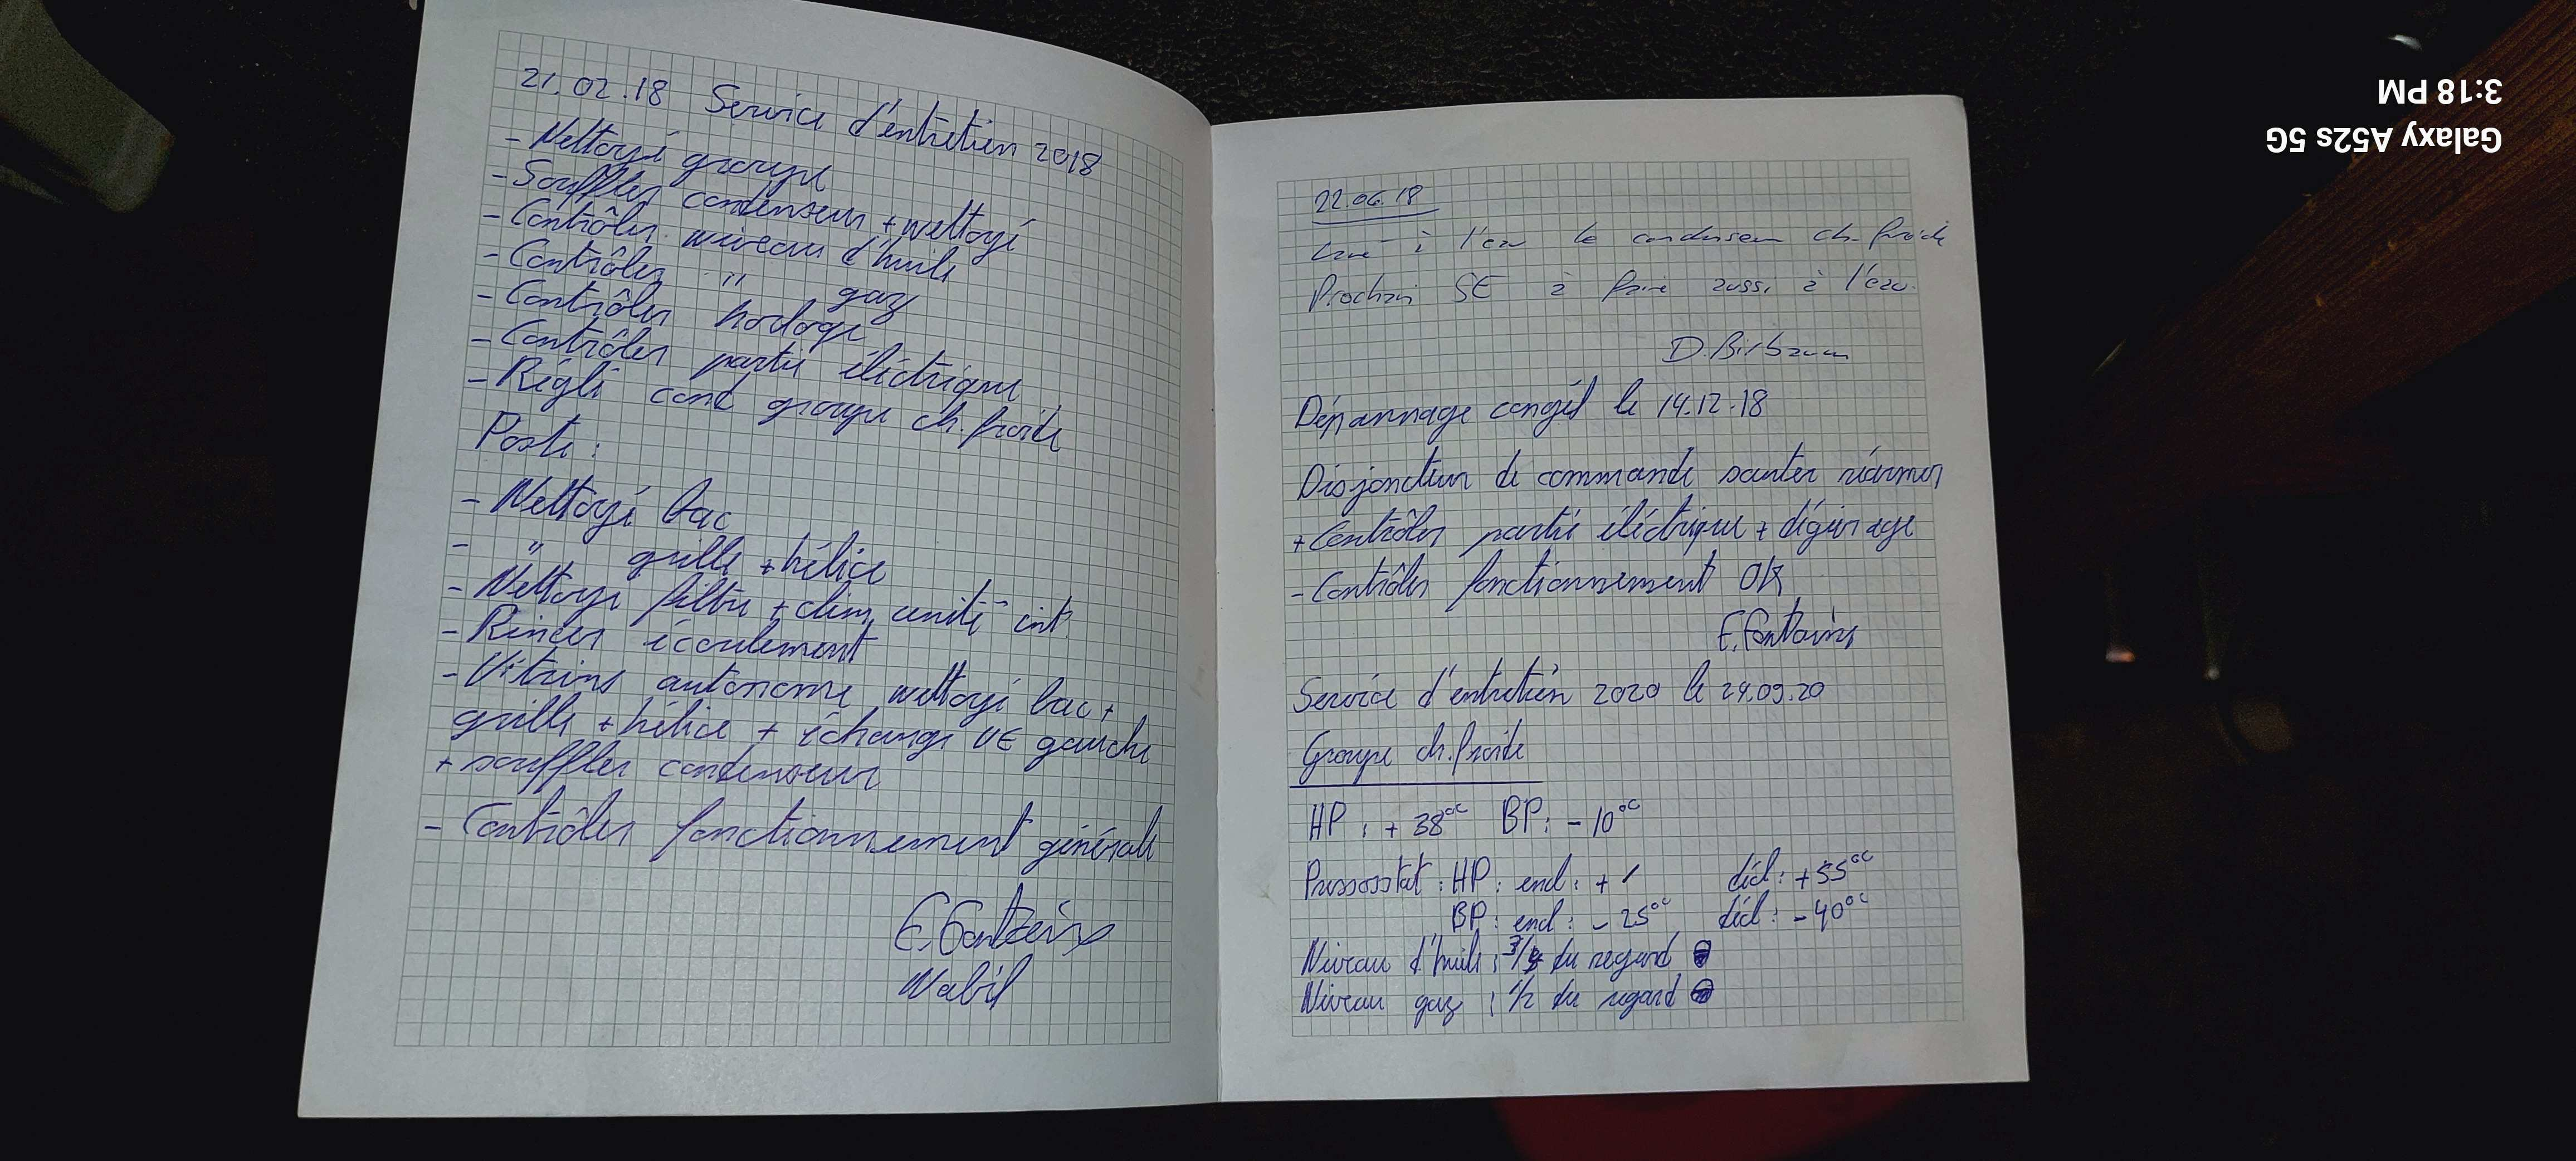 21.02.18 Service d'entretien 2018
- Nettoyé groupe
- Souffler condenseur + nettoyé
- Contrôler niveau d'huile
- Contrôler " gaz
- Contrôler horloge
- Contrôler partie éléctrique
- Réglé cond groupe ch. froide
Poste :
- Nettoyé bac
- " grille + hélice
- Nettoyé filtre + clim unité int.
- Rincer écoulement
- Vitrine autonome nettoyé bac +
grille + hélice + échange VE gauche
+ souffler condenseur
- Contrôler fonctionnement générale
E. Fontaine
Nabil
22.06.18
Lavé à l'eau le condenseur ch. froide
Prochain SE à faire aussi à l'eau.
D. Birbaum
Dépannage congél le 14.12.18
Disjoncteur de commande sauter réarmer
+ Contrôler partie éléctrique + dégivrage
- Contrôler fonctionnement OK
E. Fontaine
Service d'entretien 2020 le 24.09.20
Groupe ch. froide
HP : + 38°C BP : - 10°C
Pressostat : HP : encl : + / décl : +55°C
BP : encl : - 25°C décl : - 40°C
Niveau d'huile : du regard
Niveau gaz : 1/2 du regard
Galaxy A52s 5G
3:18 PM